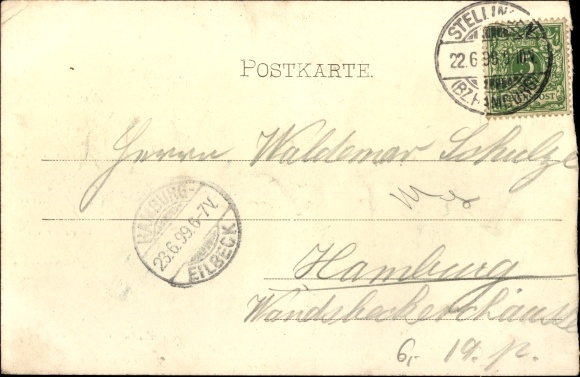 POSTKARTE.
STELLIN
22.6.99.9-10
(BZ. HAMBURG)
POST
Herrn Waldemar Schulze
HAMBURG-
23.6.99.6-7V.
EILBECK
Hamburg
Wandsbeckerchaussee
6, 19. p.